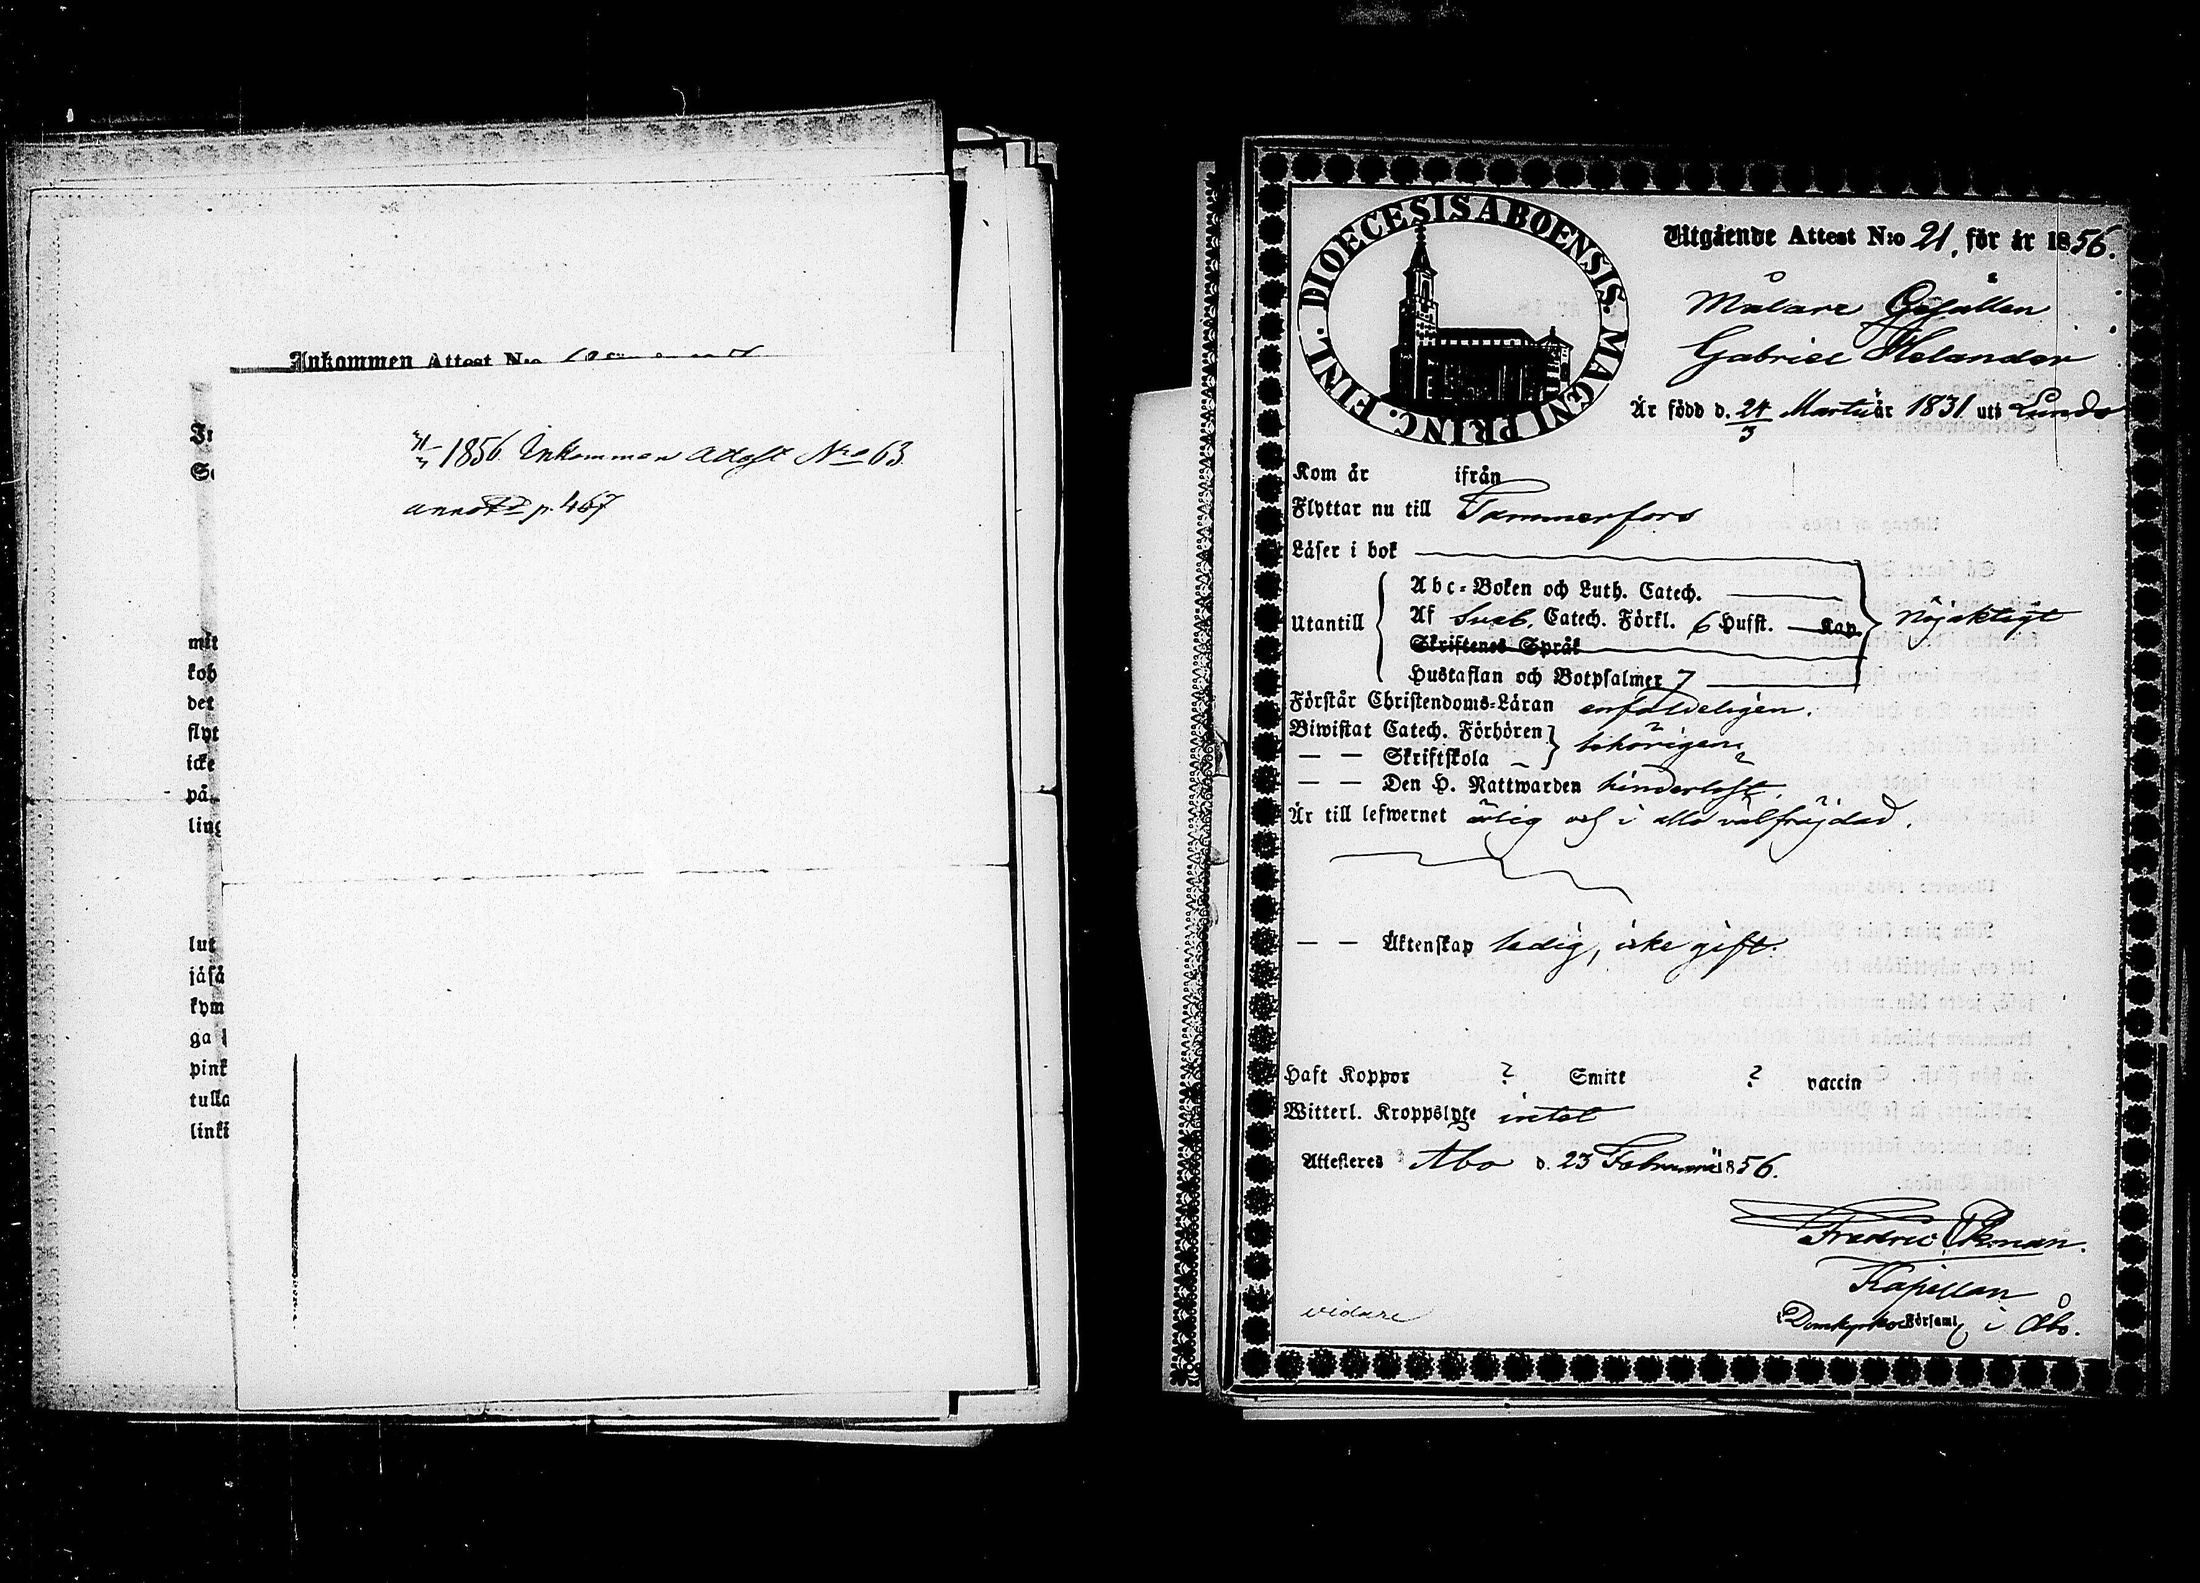 Inkommen Attest N:o
31/3 1856. Inkommen Attest N:ro 63.
annot: p. 467
mit
kob
det
flyt
icke
på
ling
lut
jäså
kym
ga
pink
tulla
linki
DIOECESIS ABOENSIS. MAGNI PRINC. FINL.
Utgående Attest N:o 21. för år 1856.
Målare Gesällen
Gabriel Helander
Är född d. 24/3 Martii år 1831 uti Lundo
Kom år ifrån
Flyttar nu till Tammerfors
Läser i bok
Utantill
Abc-Boken och Luth. Catech.
Af Sveb. Catech. Förkl. 6 Hufst. Kap.
Skriftenes Språk
Hustaflan och Botpsalmer 7
nöjaktigt
Förstår Christendoms-Läran enfaldeligen.
Biwistat Catech. Förhören
— — Skriftskola
behörigen
— — Den H. Nattwarden hinderlöst.
Är till lefwernet ärlig och i alla välfräjdad.
— — Äktenskap ledig, icke gift.
Haft Koppor ? Smitt ? vaccin
Witterl. Kroppslyte intet
Attesteres Åbo d. 23 Februarii 1856.
Fredric Ekman.
Kapellan
i Domkyrko Församl. i Åbo.
vidare